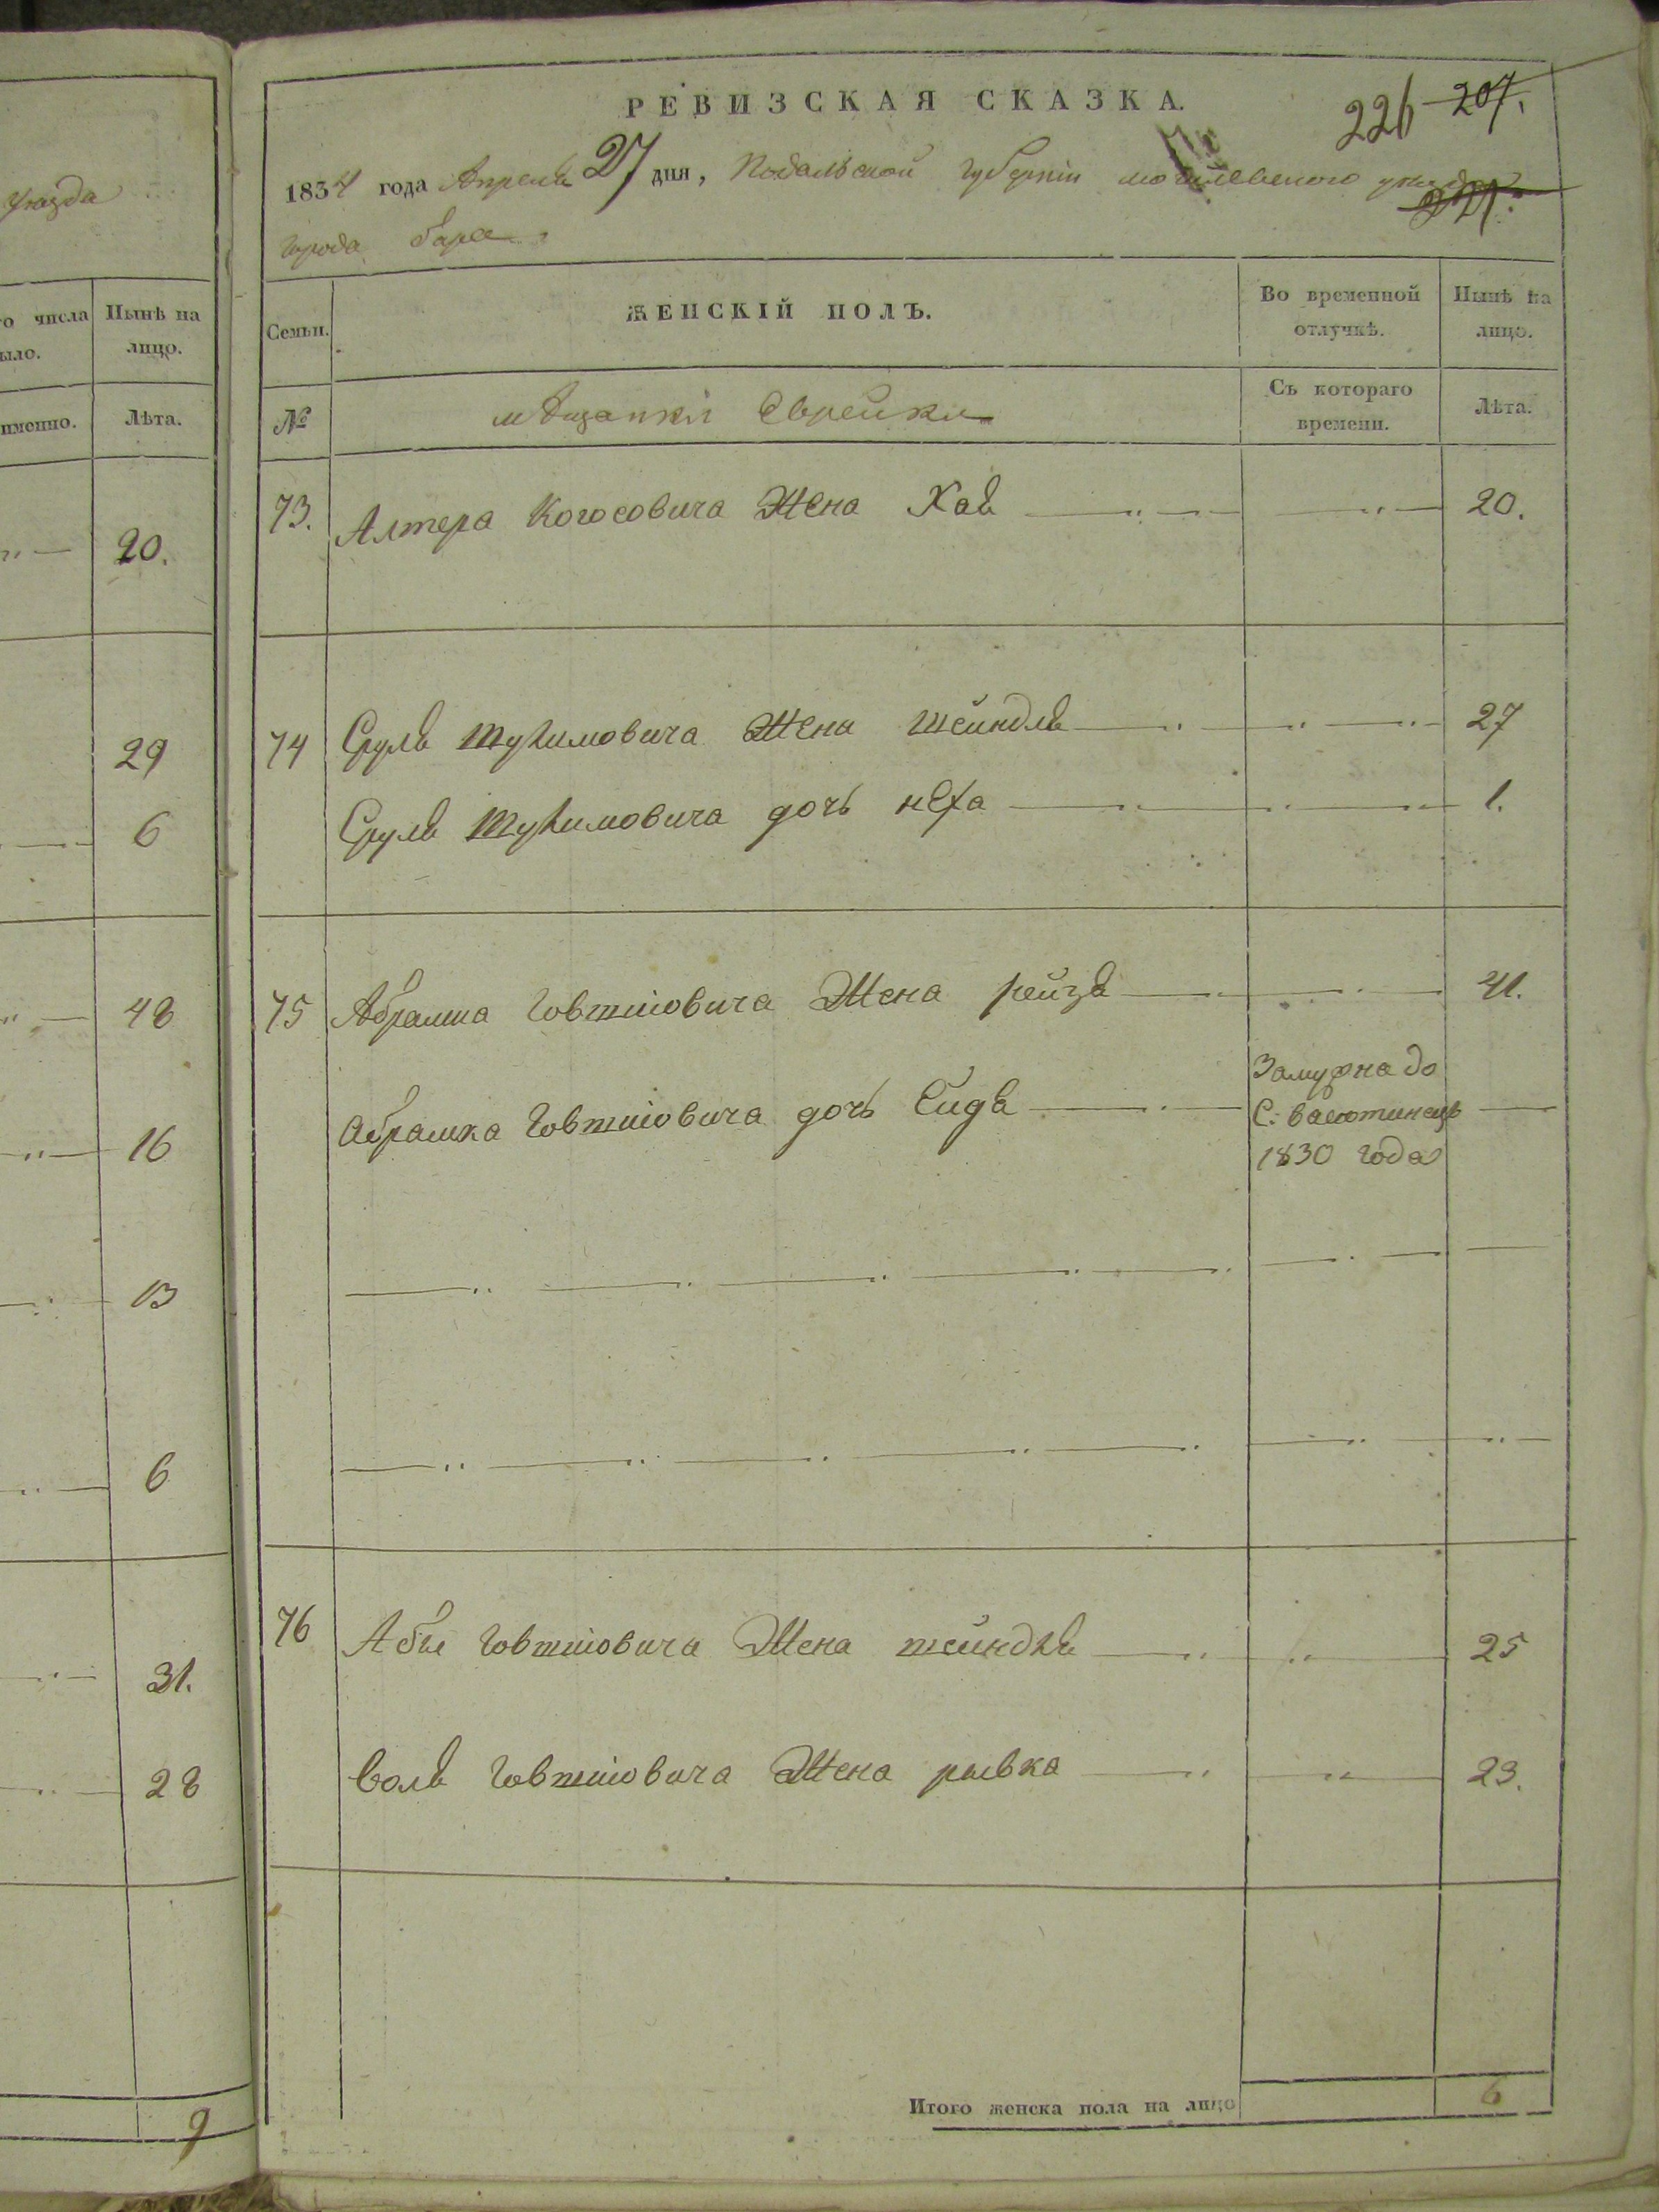 уѣзда
го числа
было.
Нынѣ на
лицо.
именно.
Лѣта.
20.
29
6
48
16
13
6
31.
28
9
РЕВИЗСКАЯ СКАЗКА.
226 207.
1834 года Апреля 27 дня, Подольской губерніи могилевского уезда
221.
города бара
Семьи.
ЖЕНСКІЙ ПОЛЪ.
Во временной
отлучкѣ.
Нынѣ на
лицо.
№
мѣщанки Еврейки
Съ котораго
времени.
Лѣта.
73. Алтера Когосовича Жена Хаѣ 20.
74 Сруля Жена Шейндля 27
Сруля дочь неха 1.
75 Абрамка Говшіовича Жена рейзѣ 41.
Абрамка Говшіовича дочь Сидѣ
Замужна до
С: васютинецъ
1830 года
76 Абы Говшіовича Жена шейндля 25
Воля Говшіовича Жена рывка 23.
Итого женска пола на лицо 6